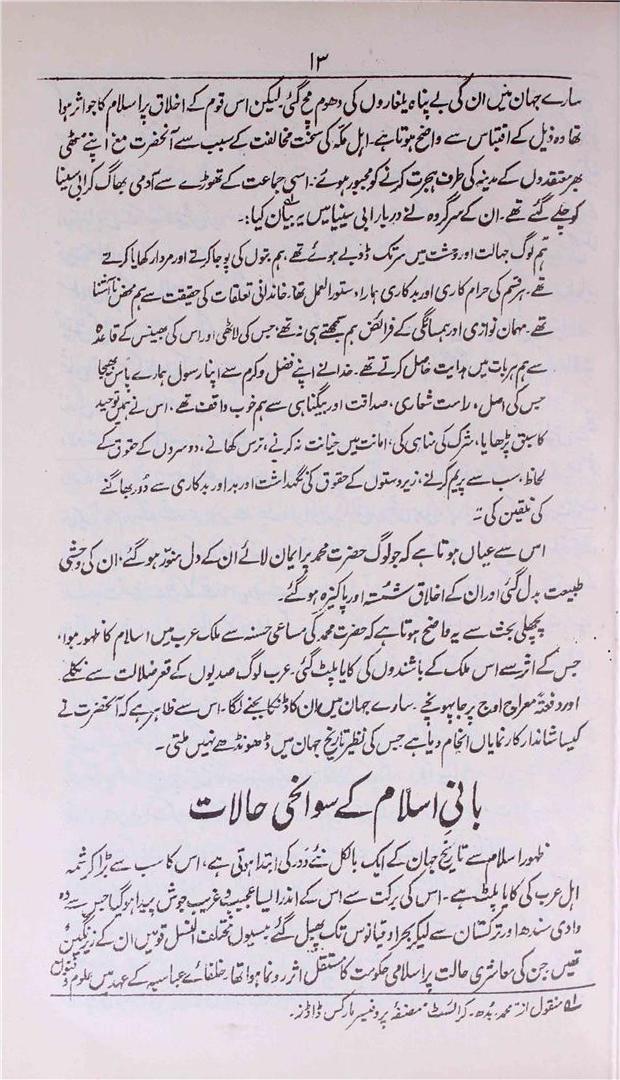 ۱۳
سارے جہان میں ان کی بے پناہ یلغاروں کی دھوم مچ گئی۔ لیکن اس قوم کے اخلاق پر اسلام کا جو اثر ہوا
تھا وہ ذیل کے اقتباس سے واضح ہوتا ہے۔ اہل مکہ کی سخت مخالفت کے سبب سے آنحضرت مع اپنے مٹھی
بھر معتقدوں کے مدینہ کی طرف ہجرت کرنے کو مجبور ہوئے۔ اسی جماعت کے تھوڑے سے آدمی بھاگ کر ابی سینیا
کو چلے گئے تھے۔ ان کے سرگروہ نے دربار ابی سینیا میں یہ بیان کیا:۔
ہم لوگ جہالت اور وحشت میں سر تک ڈوبے ہوئے تھے، ہم بتوں کی پوجا کرتے اور مردار کھایا کرتے
تھے۔ ہر قسم کی حرام کاری اور بدکاری ہمارا دستور العمل تھا۔ خاندانی تعلقات کی حقیقت سے ہم محض ناآشنا
تھے۔ مہمان نوازی اور ہمسائگی کے فرائض ہم سمجھتے ہی نہ تھے۔ جس کی لاٹھی اور اس کی بھینس کے قاعدہ
سے ہم ہر بات میں ہدایت حاصل کرتے تھے۔ خدا نے اپنے فضل و کرم سے اپنا رسول ہمارے پاس بھیجا
جس کی اصل، راست شعاری، صداقت اور بیگناہی سے ہم خوب واقف تھے، اس نے ہمیں توحید
کا سبق پڑھایا، شرک کی مناہی کی، امانت میں خیانت نہ کرنے، ترس کھانے، دوسروں کے حقوق کے
لحاظ، سب سے پریم کرنے، زیردستوں کے حقوق کی نگہداشت اور بد اور بدکاری سے دور بھاگنے
کی تلقین کی۔"
اس سے عیاں ہوتا ہے کہ جو لوگ حضرت محمد پر ایمان لائے ان کے دل منور ہو گئے، ان کی وحشی
طبیعت بدل گئی اور ان کے اخلاق شستہ اور پاکیزہ ہو گئے۔
پچھلی بحث سے یہ واضح ہوتا ہے کہ حضرت محمد کی مساعی حسنہ سے ملک عرب میں اسلام کا ظہور ہوا،
جس کے اثر سے اس ملک کے باشندوں کی کایا پلٹ گئی۔ عرب لوگ صدیوں کے قعر ضلالت سے نکلے
اور دفعۃً معراج اوج پر جا پہونچے۔ سارے جہان میں ان کا ڈنکا بجنے لگا۔ اس سے ظاہر ہے کہ آنحضرت نے
کیسا شاندار کار نمایاں انجام دیا ہے جس کی نظیر تاریخ جہان میں ڈھونڈھے نہیں ملتی۔
بانیِ اسلام کے سوانحی حالات
ظہور اسلام سے تاریخ جہان کے ایک بالکل نئے دور کی ابتدا ہوتی ہے، اس کا سب سے بڑا کرشمہ
اہل عرب کی کایا پلٹ ہے۔ اس کی برکت سے اس کے اندر ایسا عجیب و غریب جوش پیدا ہو گیا جس سے وہ
وادی سندھ اور ترکستان سے لیکر بحر اوقیانوس تک پھیل گئے بیسیوں مختلف النسل قومیں ان کے زیرنگیں
تھیں جن کی معاشرتی حالت پر اسلامی حکومت کا مستقل اثر رونما ہوا تھا۔ خلفائے عباسیہ کے عہد میں علوم و فنون
۱ منقول از محمد۔ بدھ۔ کرائسٹ مصنفہ پروفیسر مارکس ڈاڈز۔